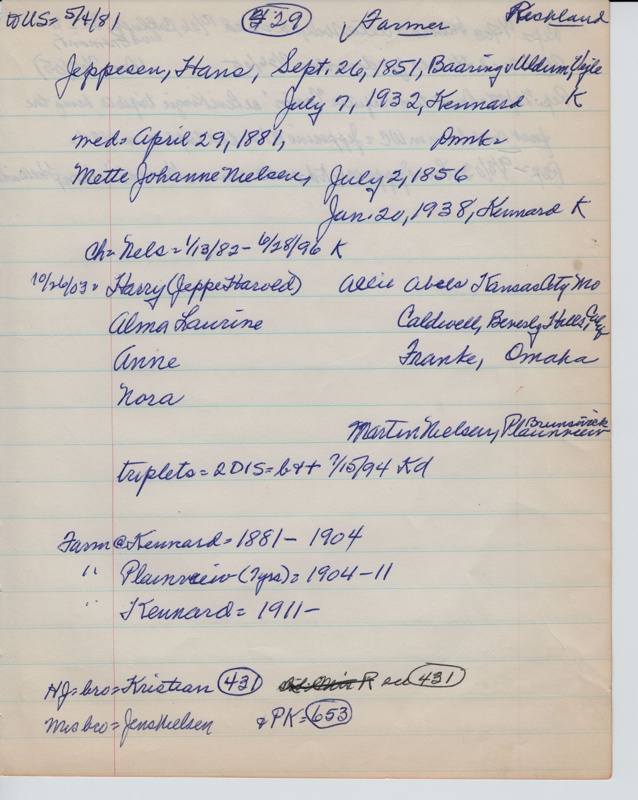 toUS=5/4/81 #29 √Farmer Richland
Jeppesen, Hans, Sept. 26, 1851, Baaring v Uldum, Vejle
July 7, 1932, Kennard K
med= April 29, 1881, Dmk=
Mette Johanne Nielsen, July 2, 1856
Jan. 20, 1938, Kennard K
Ch= Nels=1/13/82 - 6/28/96 K
10/26/03= Harry (Jeppe Harold) Allie Abels Kansas City Mo
Alma Laurine Caldwell, Beverly Hills, Calif
Anne Franke, Omaha
Nora
Martin Nielsen, Plainview Brunswick
triplets = 2DIS=b&+ 7/15/94 Kd
Farm @ Kennard = 1881 - 1904
" Plainview (7yrs) = 1904-11
" Kennard = 1911-
HJ=bro=Kristian 431 R see 431
Mrs bro=Jens Nielsen & PK=653